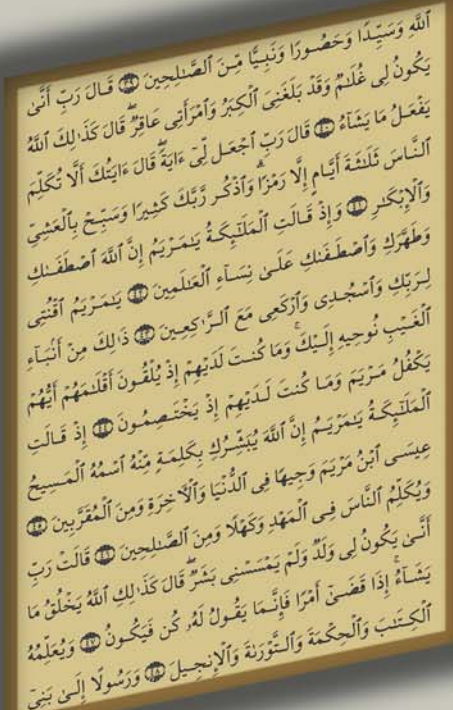 ٱللَّهِ وَسَيِّدًا وَحَصُورًا وَنَبِيًّا مِّنَ ٱلصَّٰلِحِينَ ٣٩ قَالَ رَبِّ أَنَّىٰ
يَكُونُ لِى غُلَٰمٌ وَقَدْ بَلَغَنِىَ ٱلْكِبَرُ وَٱمْرَأَتِى عَاقِرٌۖ قَالَ كَذَٰلِكَ ٱللَّهُ
يَفْعَلُ مَا يَشَآءُ ٤٠ قَالَ رَبِّ ٱجْعَل لِّىٓ ءَايَةًۖ قَالَ ءَايَتُكَ أَلَّا تُكَلِّمَ
ٱلنَّاسَ ثَلَٰثَةَ أَيَّامٍ إِلَّا رَمْزًاۗ وَٱذْكُر رَّبَّكَ كَثِيرًا وَسَبِّحْ بِٱلْعَشِىِّ
وَٱلْإِبْكَٰرِ ٤١ وَإِذْ قَالَتِ ٱلْمَلَٰٓئِكَةُ يَٰمَرْيَمُ إِنَّ ٱللَّهَ ٱصْطَفَىٰكِ
وَطَهَّرَكِ وَٱصْطَفَىٰكِ عَلَىٰ نِسَآءِ ٱلْعَٰلَمِينَ ٤٢ يَٰمَرْيَمُ ٱقْنُتِى
لِرَبِّكِ وَٱسْجُدِى وَٱرْكَعِى مَعَ ٱلرَّٰكِعِينَ ٤٣ ذَٰلِكَ مِنْ أَنۢبَآءِ
ٱلْغَيْبِ نُوحِيهِ إِلَيْكَۚ وَمَا كُنتَ لَدَيْهِمْ إِذْ يُلْقُونَ أَقْلَٰمَهُمْ أَيُّهُمْ
يَكْفُلُ مَرْيَمَ وَمَا كُنتَ لَدَيْهِمْ إِذْ يَخْتَصِمُونَ ٤٤ إِذْ قَالَتِ
ٱلْمَلَٰٓئِكَةُ يَٰمَرْيَمُ إِنَّ ٱللَّهَ يُبَشِّرُكِ بِكَلِمَةٍ مِّنْهُ ٱسْمُهُ ٱلْمَسِيحُ
عِيسَى ٱبْنُ مَرْيَمَ وَجِيهًا فِى ٱلدُّنْيَا وَٱلْءَاخِرَةِ وَمِنَ ٱلْمُقَرَّبِينَ ٤٥
وَيُكَلِّمُ ٱلنَّاسَ فِى ٱلْمَهْدِ وَكَهْلًا وَمِنَ ٱلصَّٰلِحِينَ ٤٦ قَالَتْ رَبِّ
أَنَّىٰ يَكُونُ لِى وَلَدٌ وَلَمْ يَمْسَسْنِى بَشَرٌۖ قَالَ كَذَٰلِكِ ٱللَّهُ يَخْلُقُ مَا
يَشَآءُۚ إِذَا قَضَىٰٓ أَمْرًا فَإِنَّمَا يَقُولُ لَهُۥ كُن فَيَكُونُ ٤٧ وَيُعَلِّمُهُ
ٱلْكِتَٰبَ وَٱلْحِكْمَةَ وَٱلتَّوْرَىٰةَ وَٱلْإِنجِيلَ ٤٨ وَرَسُولًا إِلَىٰ بَنِىٓ